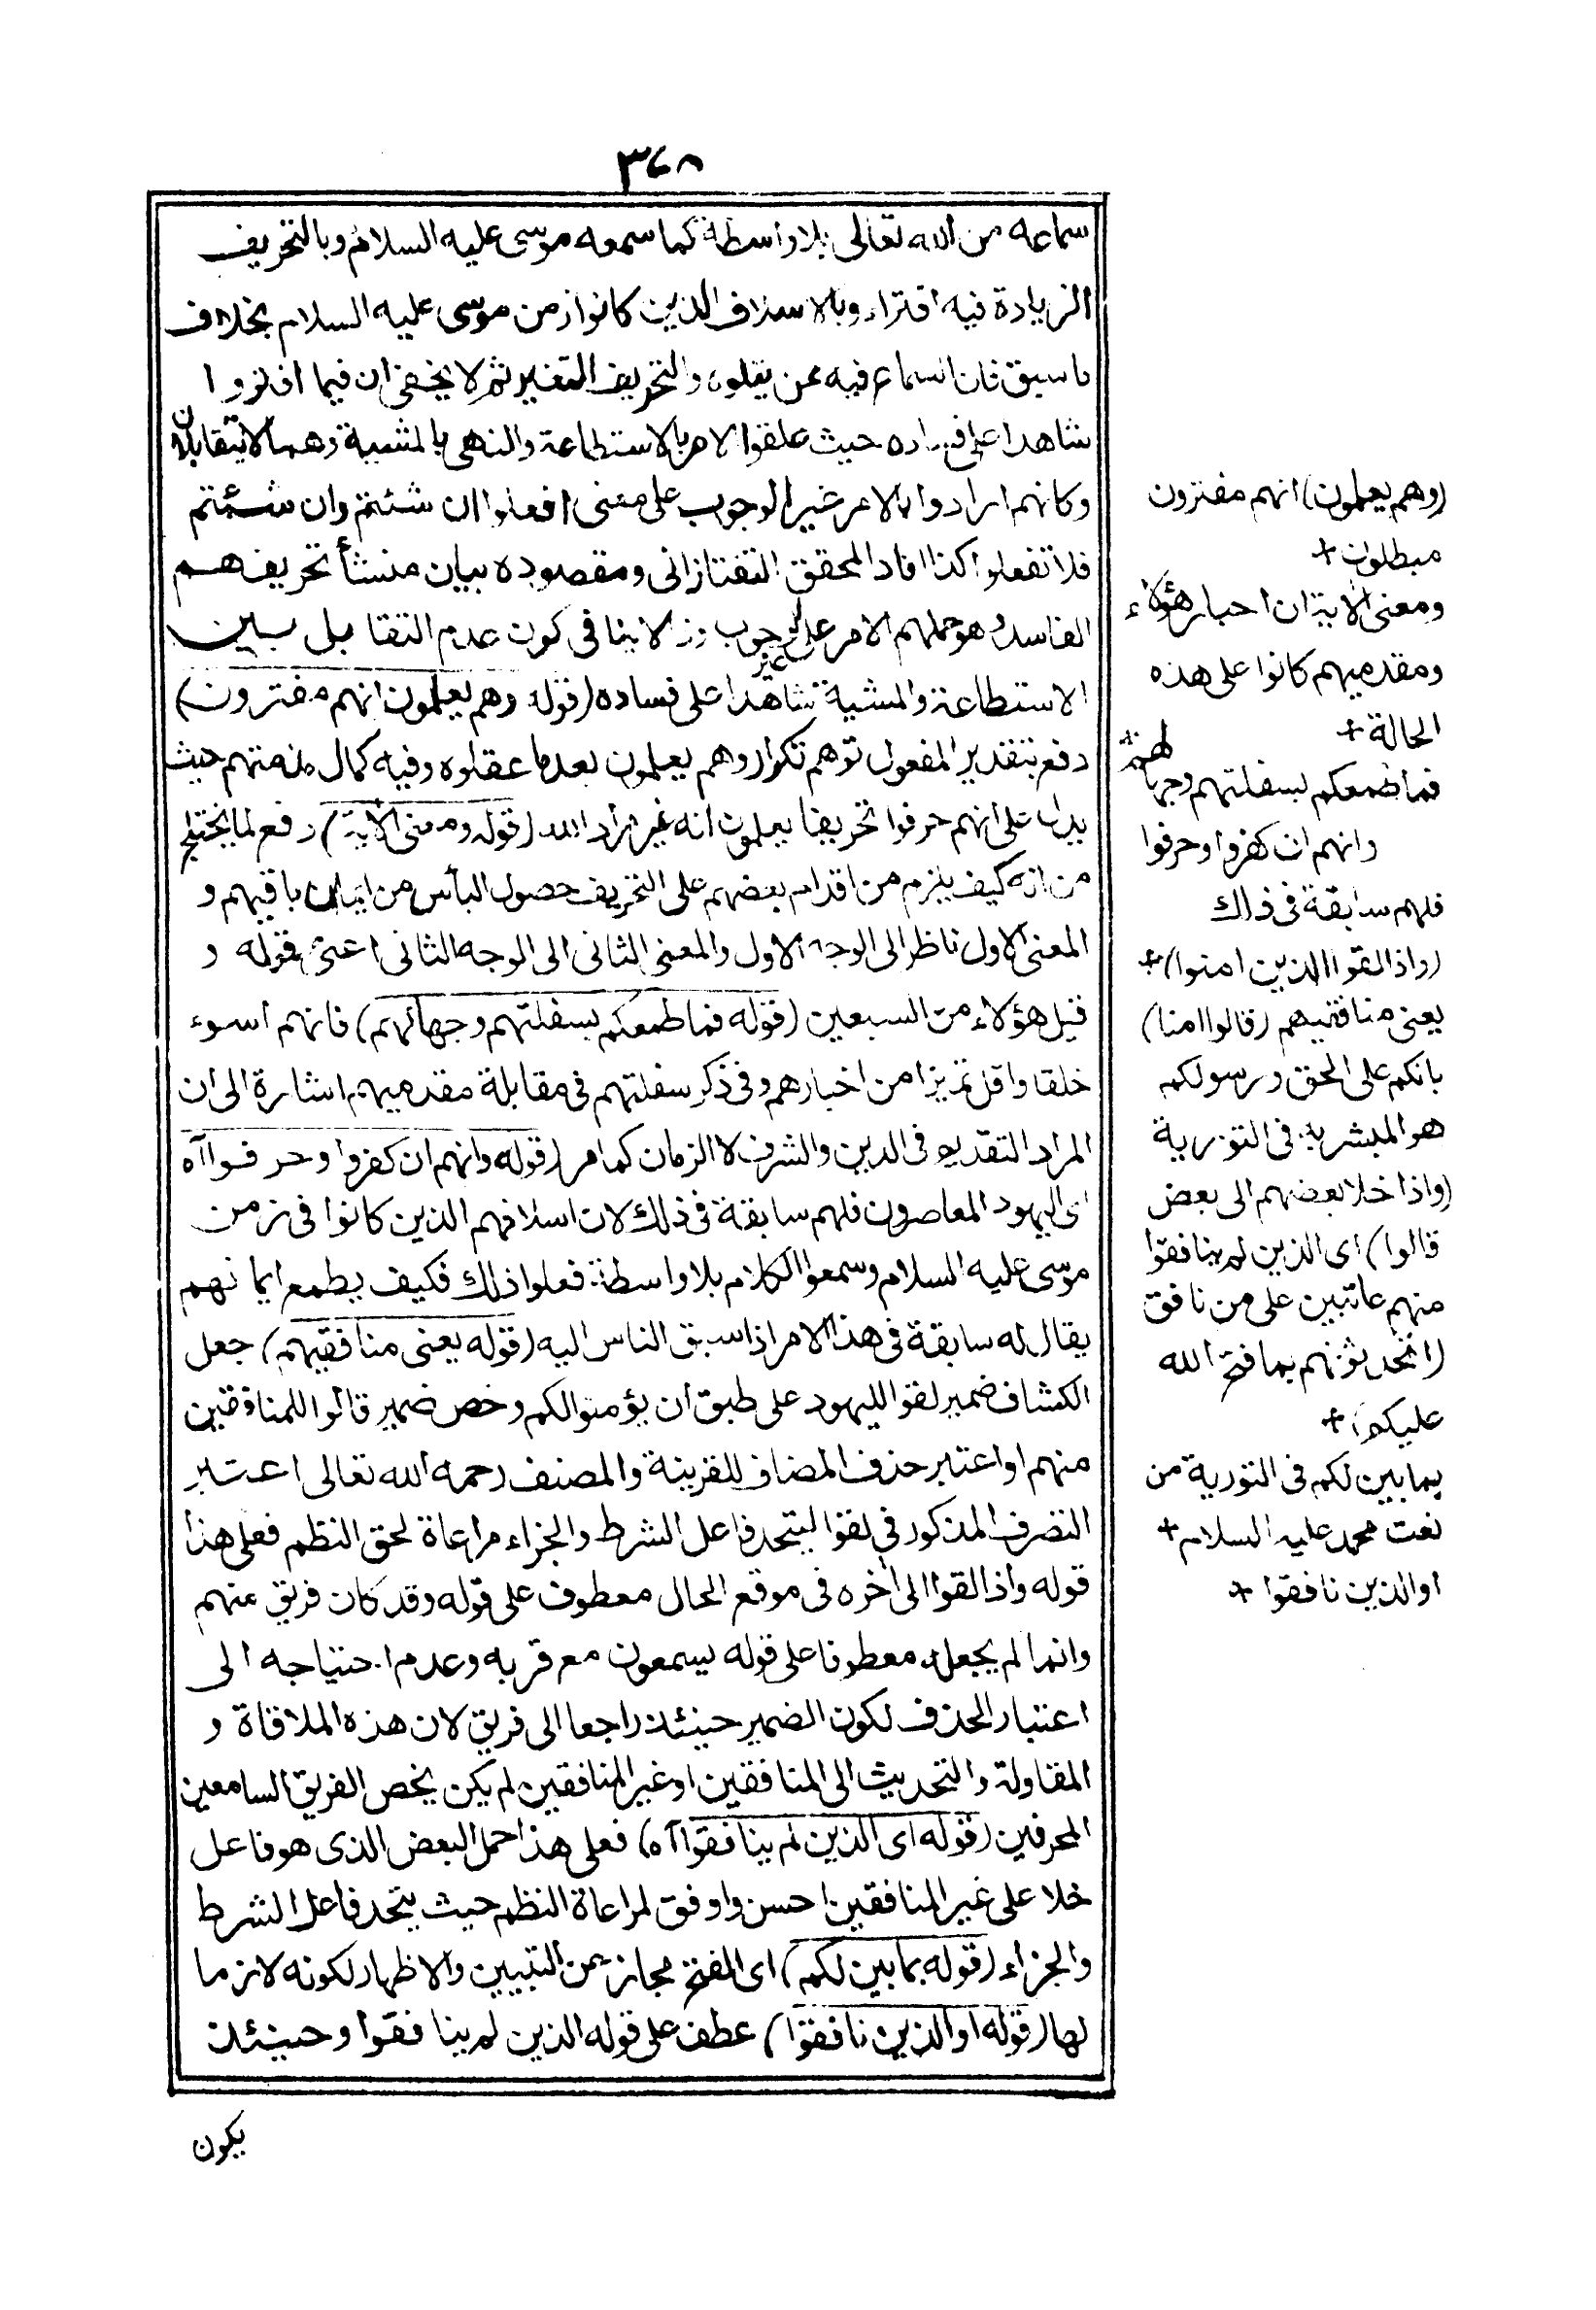 ٣٤٨
سماعه من الله تعالى بلا واسطة كما سمعه موسى عليه السلام وبالتحريف
الزيادة فيه افتراء وبالاسلاف الذين كانوا زمن موسى عليه السلام بخلاف
ما سبق فان السماع فيه عمن يتلوه والتحريف التغير ثم لا يخفى ان فيما افتروا
شاهدا على فساده حيث علقوا الامر بالاستطاعة والنهى بالمشية وهما لا يتقابلان
وكانهم ارادوا بالامر غير الوجوب على معنى افعلوا ان شئتم وان شئتم
فلا تفعلوا كذا افاد المحقق التفتازانى ومقصوده بيان منشأ تحريفهم
الفاسد وهو حملهم الامر على غير الوجوب وذا لا ينافى كون عدم التقابل بين
الاستطاعة والمشية شاهدا على فساده (قوله وهم يعلمون انهم مفترون)
دفع بتقدير المفعول توهم تكرار وهم يعلمون بعد ما عقلوه وفيه كمال مذمتهم حيث
يدل على انهم حرفوا تحريفا يعلمون انه غير مراد الله (قوله ومعنى الاية) دفع لما يختلج
من انه كيف يلزم من اقدام بعضهم على التحريف حصول اليأس من ايمان باقيهم و
المعنى الاول ناظر الى الوجه الاول والمعنى الثانى الى الوجه الثانى اعنى قوله و
قيل هؤلاء من السبعين (قوله فما طمعكم بسفلتهم وجهالهم) فانهم اسوء
خلقا واقل تميزا من اخبارهم وفى ذكر سفلتهم فى مقابلة مقدميهم اشارة الى ان
المراد التقديم فى الدين والشرف لا الزمان كما مر (قوله وانهم ان كفروا وحرفوا آه
اى اليهود المعاصرون فلهم سابقة فى ذلك لان اسلافهم الذين كانوا فى زمن
موسى عليه السلام وسمعوا الكلام بلا واسطة فعلوا ذلك فكيف يطمع ايمانهم
يقال له سابقة فى هذا الامر اذا سبق الناس اليه (قوله يعنى منافقيهم) جعل
الكشاف ضمير لقوا لليهود على طبق ان يؤمنوا لكم وخص ضمير قالوا للمنافقين
منهم او اعتبر حذف المضاف للقرينة والمصنف رحمه الله تعالى اعتبر
التصرف المذكور فى لقوا ليتحد فاعل الشرط والجزاء مراعاة لحق النظم فعلى هذا
قوله واذا لقوا الى أخره فى موقع الحال معطوف على قوله وقد كان فريق منهم
وانما لم يجعل معطوفا على قوله يسمعون مع قربه وعدم احتياجه الى
اعتبار الحذف لكون الضمير حينئذ راجعا الى فريق لان هذه الملاقاة و
المقاولة والتحديث الى المنافقين او غير المنافقين لم يكن يخص الفريق السامعين
المحرفين (قوله اى الذين لم ينافقوا آه) فعلى هذا حمل البعض الذى هو فاعل
خلا على غير المنافقين احسن واوفق لمراعاة النظم حيث يتحد فاعل الشرط
والجزاء (قوله بما بين لكم) اى الفتح مجاز عن التبيين والاظهار لكونه لازما
لها (قوله او الذين نافقوا) عطف على قوله الذين لم ينافقوا وحينئذ
يكون
(وهم يعلمون) انهم مفترون
مبطلون +
ومعنى الاية ان احبار هؤلاء
ومقدميهم كانوا على هذه
الحالة +
فما طمعكم بسفلتهم وجهالهم
وانهم ان كفروا وحرفوا
فلهم سابقة فى ذلك
(واذا لقوا الذين امنوا) +
يعنى منافقيهم (قالوا امنا)
بانكم على الحق ورسولكم
هو المبشر به فى التورية
(واذا خلا بعضهم الى بعض
قالوا) اى الذين لم ينافقوا
منهم عاتبين على من نافق
(اتحدثونهم بما فتح الله
عليكم) +
بما بين لكم فى التورية من
نعت محمد عليه السلام +
او الذين نافقوا +